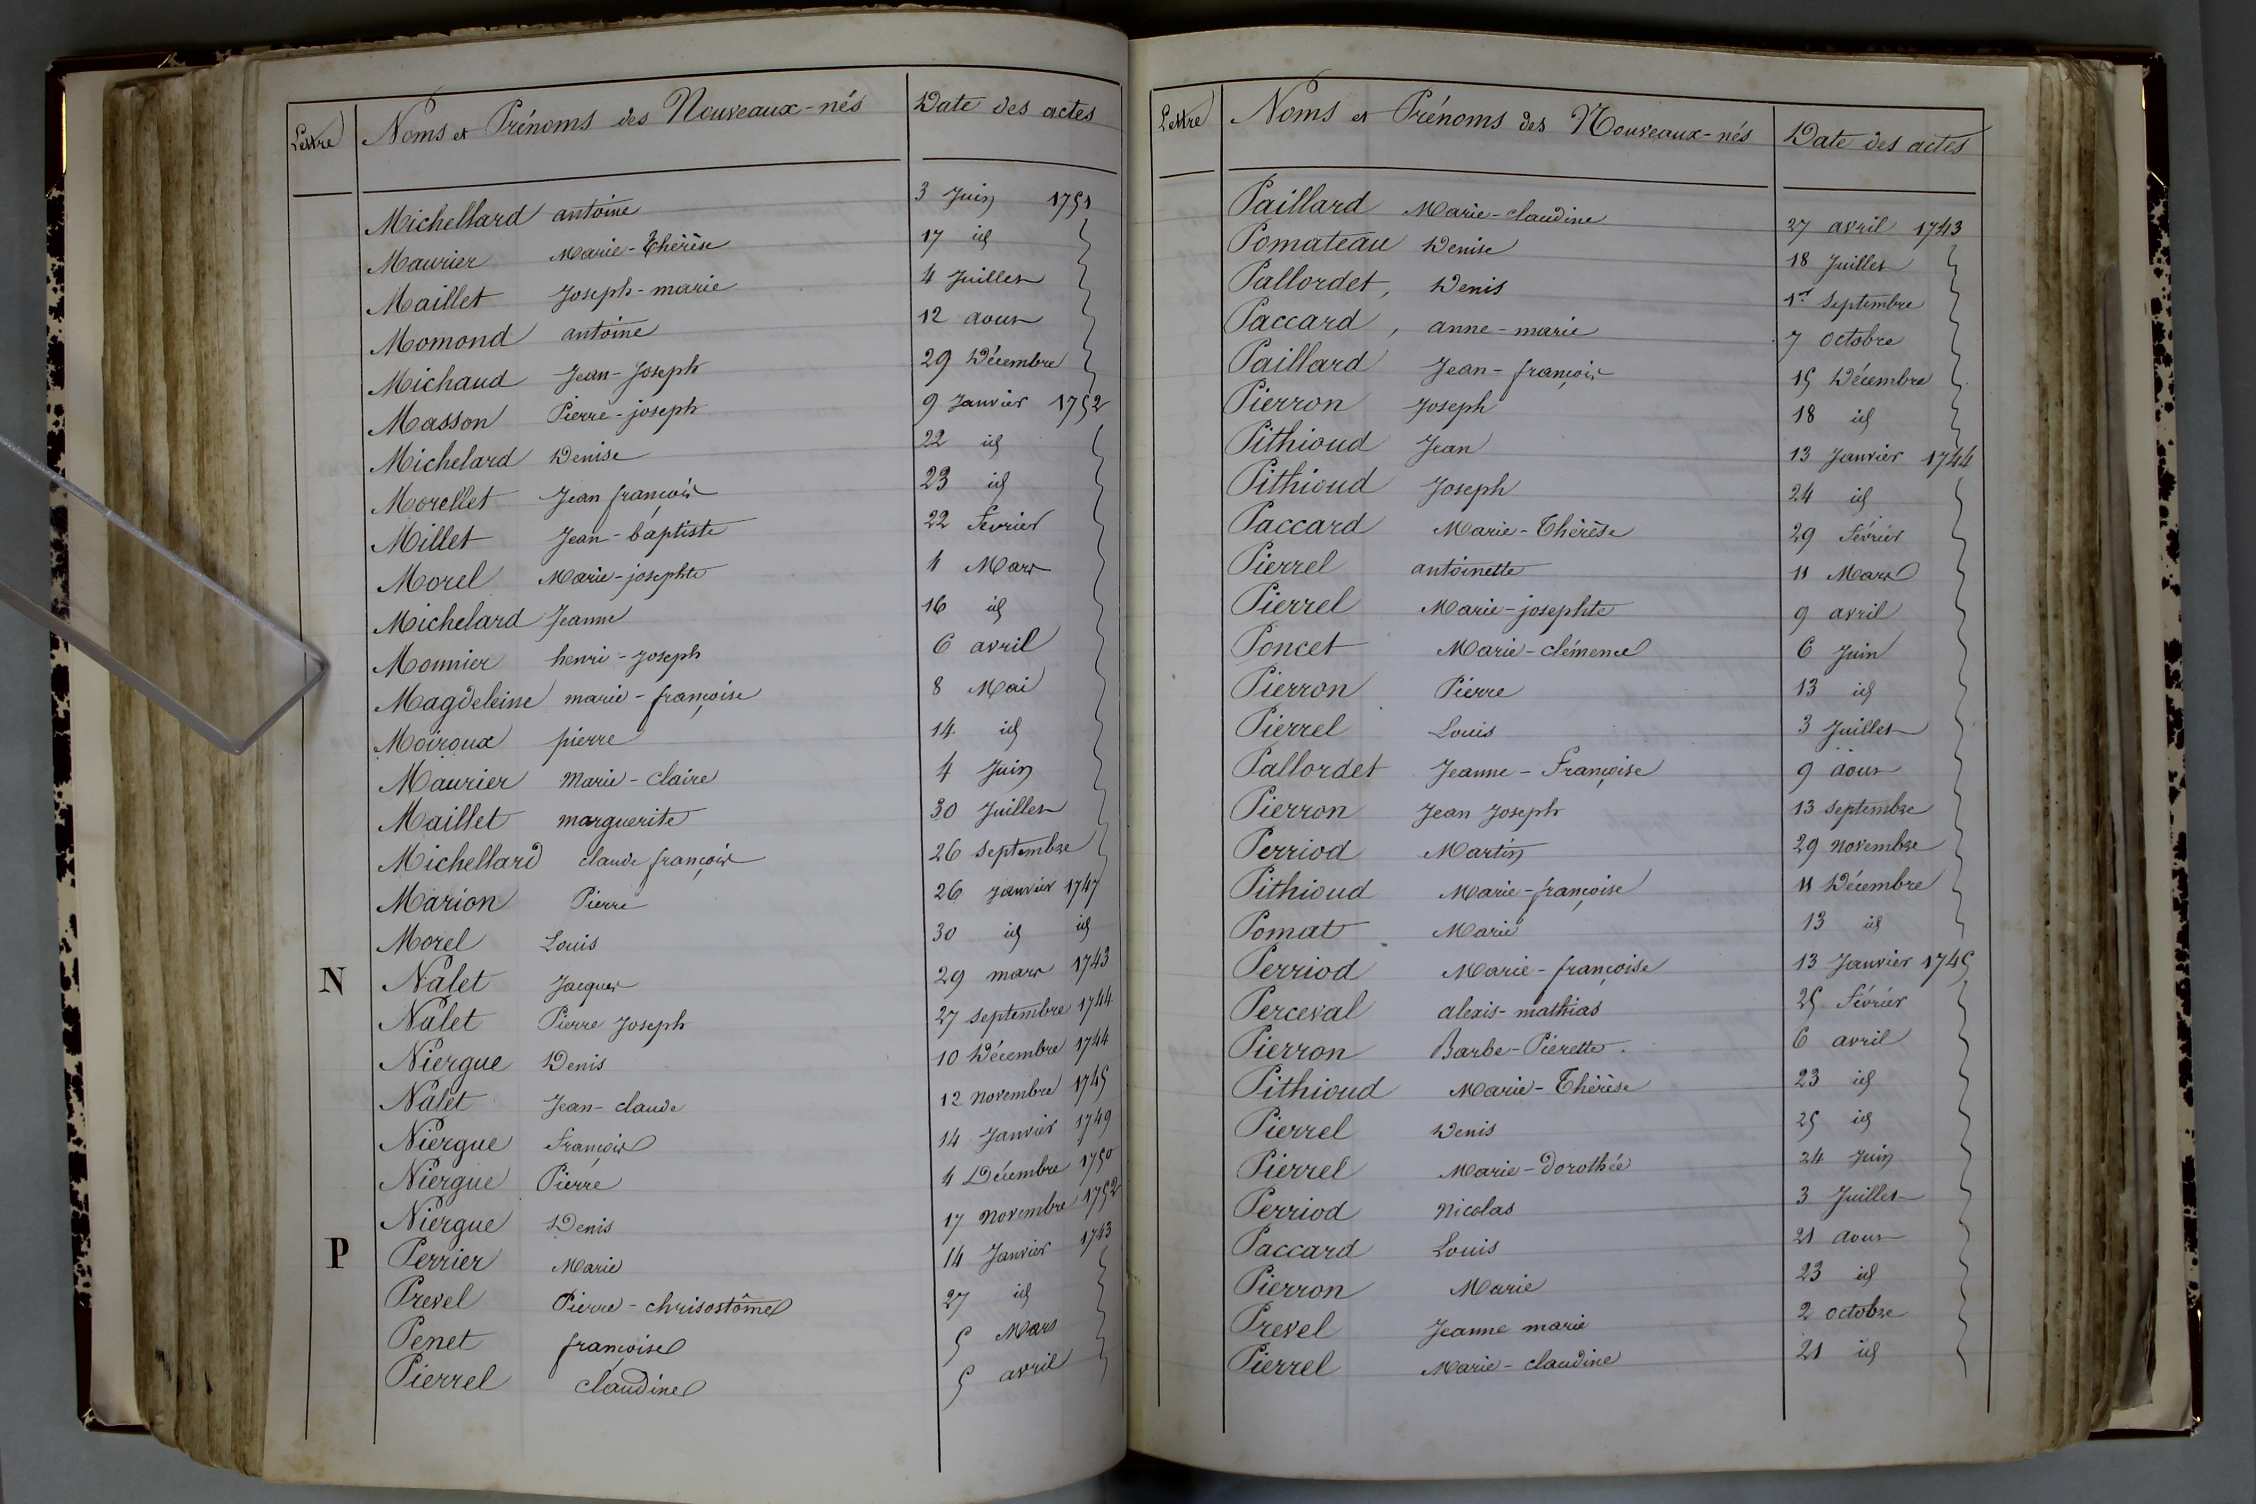 Lettre Noms et Prénoms des Nouveaux-nés Date des actes
Michellard antoine 3 Juin 1751
Maurier Marie-Thérèse 17 id
Maillet Joseph-marie 4 Juillet
Momond antoine 12 aout
Michaud Jean-Joseph 29 Décembre
Masson Pierre-joseph 9 Janvier 1752
Michelard Denise 22 id
Morellet Jean françois 23 id
Millet Jean-baptiste 22 Fevrier
Morel Marie-josephte 1 Mars
Michelard Jeanne 16 id
Monnier henri-joseph 6 avril
Magdeleine marie-françoise 8 Mai
Moiroux pierre 14 id
Maurier Marie-Claire 4 Juin
Maillet marguerite 30 Juillet
Michellard claude françois 26 Septembre
Marion Pierre 26 Janvier 1747
Morel Louis 30 id id
N Nalet Jacques 29 mars 1743
Nalet Pierre Joseph 27 Septembre 1744
Niergue Denis 10 Décembre 1744
Nalet Jean-claude 12 novembre 1745
Niergue François 14 Janvier 1749
Niergue Pierre 4 Décembre 1750
Niergue Denis 17 novembre 1752
P Perrier Marie 14 Janvier 1743
Prevel Pierre-chrisostôme 27 id
Penet françoise 5 Mars
Pierrel claudine 5 avril
Lettre Noms et Prénoms des Nouveaux-nés Date des actes
Paillard Marie-claudine 27 avril 1743
Pomateau Denise 18 Juillet
Pallordet, Denis 1er Septembre
Paccard, anne-marie 7 Octobre
Paillard Jean-françois 15 Décembre
Pierron Joseph 18 id
Pithioud Jean 13 Janvier 1744
Pithioud Joseph 24 id
Paccard Marie-Thérèse 29 Février
Pierrel antoinette 11 Mars
Pierrel Marie-josephte 9 avril
Poncet Marie-clémence 6 Juin
Pierron Pierre 13 id
Pierrel Louis 3 Juillet
Pallordet Jeanne-Françoise 9 aout
Pierron Jean Joseph 13 Septembre
Perriod Martin 29 novembre
Pithioud Marie-françoise 11 Décembre
Pomat Marie 13 id
Perriod Marie-françoise 13 Janvier 1745
Perceval alexis-mathias 25 Février
Pierron Barbe-Pierette. 6 avril
Pithioud Marie-Thérèse 23 id
Pierrel Denis 25 id
Pierrel Marie-Dorothée 24 Juin
Perriod Nicolas 3 Juillet
Paccard Louis 21 aout
Pierron Marie 23 id
Prevel Jeanne marie 2 octobre
Pierrel Marie-claudine 21 id